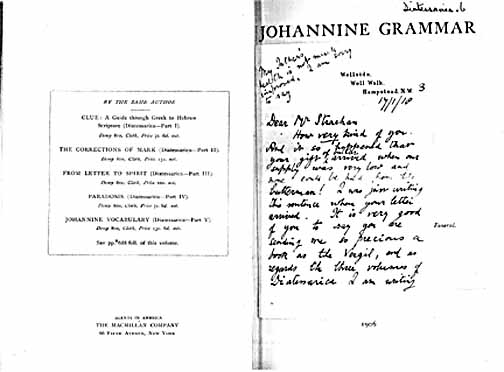 BY THE SAME AUTHOR
CLUE: A Guide through Greek to Hebrew
Scripture (Diatessarica—Part I)
Demy 8vo, Cloth, Price 7s. 6d. net.
THE CORRECTIONS OF MARK (Diatessarica—Part II)
Demy 8vo, Cloth, Price 15s. net.
FROM LETTER TO SPIRIT (Diatessarica—Part III)
Demy 8vo, Cloth, Price 20s. net.
PARADOSIS (Diatessarica—Part IV)
Demy 8vo, Cloth, Price 7s. 6d. net.
JOHANNINE VOCABULARY (Diatessarica—Part V)
Demy 8vo, Cloth, Price 13s. 6d. net.
See pp. 688 foll. of this volume.
AGENTS IN AMERICA
THE MACMILLAN COMPANY
66 FIFTH AVENUE, NEW YORK
Diatessarica. 6
JOHANNINE GRAMMAR
My Father's
health is not much
improved. I am sorry
to say
Wellside,
Well Walk,
Hampstead, N.W. 3
17/1/18
Dear Mr Strachan
How very kind of you.
And it so happened that
your gift of butter arrived when our
supply was very low and
none could be had from the
butterman! I was just writing
this sentence when your letter
arrived. It is very good
of you to say you are
sending me so precious a
book as the Vergil, and as
regards the three volumes of
Diatessarica I am writing
1906